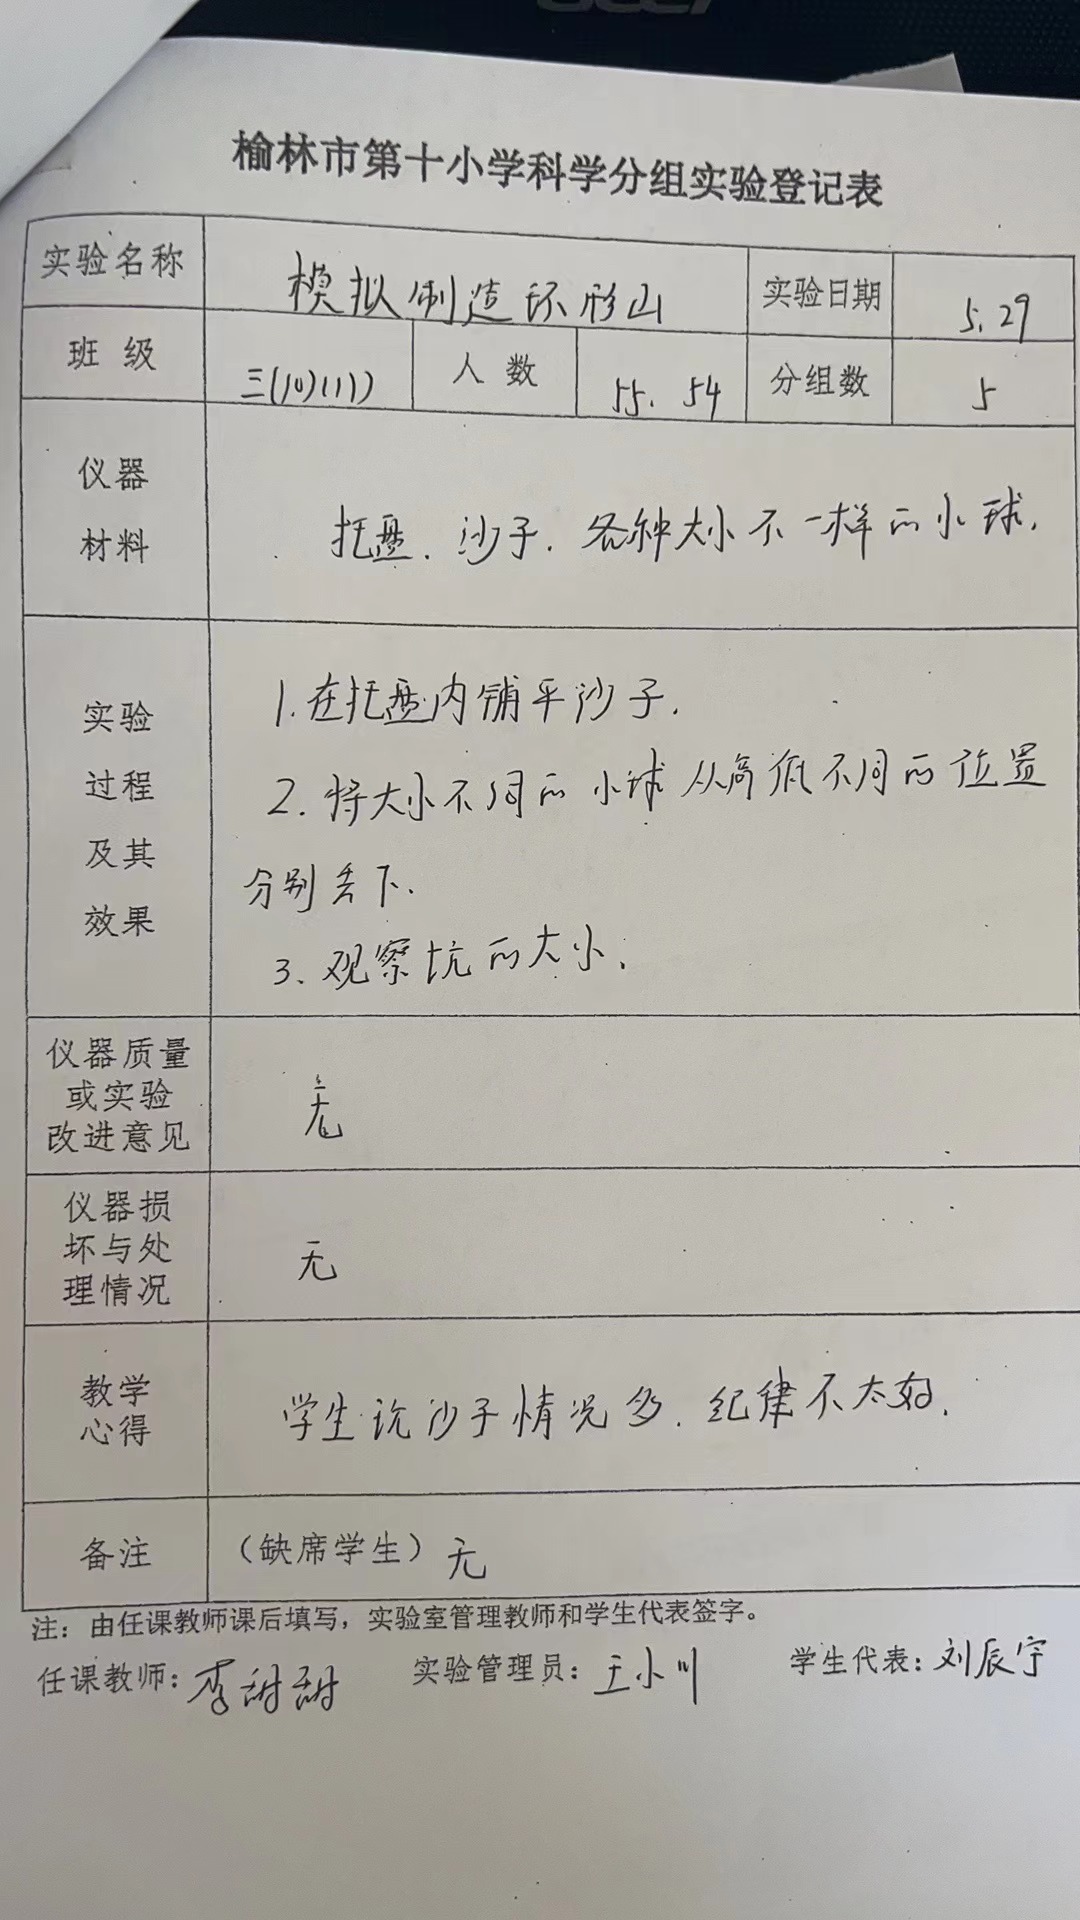 榆林市第十小学科学分组实验登记表
实验名称 模拟制造环形山 实验日期 5.29
班级 三(10)(11) 人数 55. 54 分组数 5
仪器
材料
托盘、沙子、各种大小不一样的小球.
实验
过程
及其
效果
1.在托盘内铺平沙子.
2.将大小不同的小球从高低不同的位置
分别丢下.
3.观察坑的大小.
仪器质量
或实验
改进意见
无
仪器损
坏与处
理情况
无
教学
心得
学生 沙子情况多.纪律不太好.
备注 (缺席学生) 无
注：由任课教师课后填写，实验室管理教师和学生代表签字。
任课教师：李甜甜 实验管理员：王小川 学生代表：刘辰宇